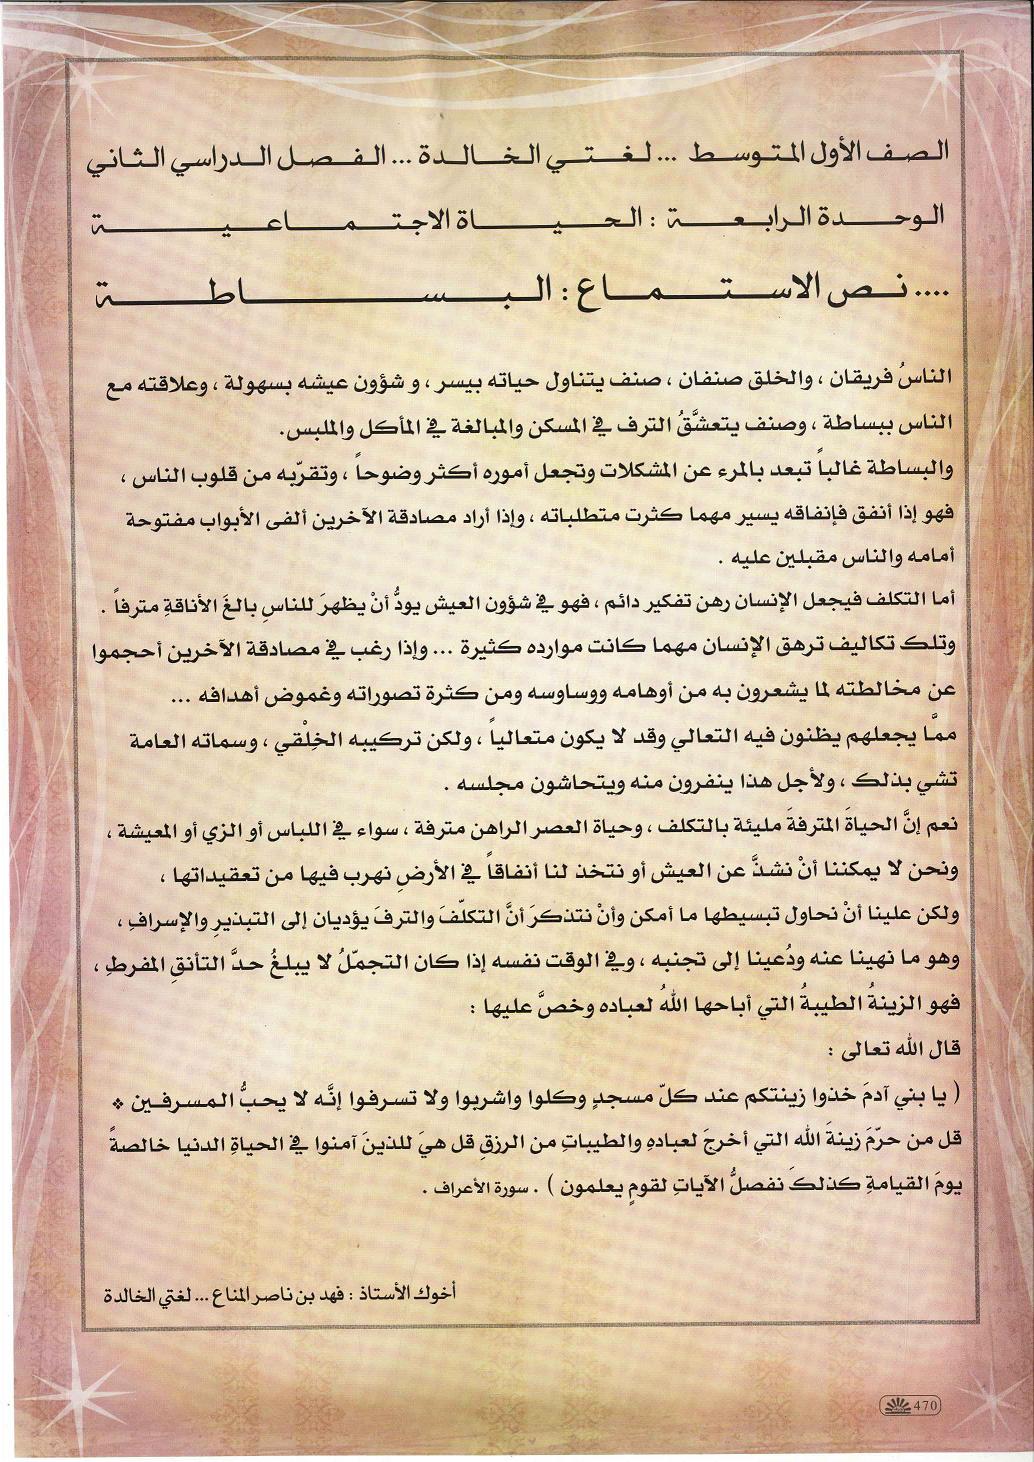 الصف الأول المتوسط ... لغتي الخالدة ... الفصل الدراسي الثاني
الوحدة الرابعة : الحياة الاجتماعية
.... نص الاستماع : البساطة
الناسُ فريقان ، والخلق صنفان ، صنف يتناول حياته بيسر ، و شؤون عيشه بسهولة ، وعلاقته مع
الناس ببساطة ، وصنف يتعشَّقُ الترف في المسكن والمبالغة في المأكل والملبس.
والبساطة غالباً تبعد بالمرء عن المشكلات وتجعل أموره أكثر وضوحاً ، وتقرّبه من قلوب الناس ،
فهو إذا أنفق فإنفاقه يسير مهما كثرت متطلباته ، وإذا أراد مصادقة الآخرين ألفى الأبواب مفتوحة
أمامه والناس مقبلين عليه .
أما التكلف فيجعل الإنسان رهن تفكير دائم ، فهو في شؤون العيش يودُّ أنْ يظهرَ للناسِ بالغَ الأناقةِ مترفاً .
وتلك تكاليف ترهق الإنسان مهما كانت موارده كثيرة ... وإذا رغب في مصادقة الآخرين أحجموا
عن مخالطته لما يشعرون به من أوهامه ووساوسه ومن كثرة تصوراته وغموض أهدافه ...
ممَّا يجعلهم يظنون فيه التعالي وقد لا يكون متعالياً ، ولكن تركيبه الخِلْقي ، وسماته العامة
تشي بذلك ، ولأجل هذا ينفرون منه ويتحاشون مجلسه .
نعم إنَّ الحياةَ المترفةَ مليئة بالتكلف ، وحياة العصر الراهن مترفة ، سواء في اللباس أو الزي أو المعيشة ،
ونحن لا يمكننا أنْ نشذَّ عن العيش أو نتخذ لنا أنفاقاً في الأرضِ نهرب فيها من تعقيداتها ،
ولكن علينا أنْ نحاول تبسيطها ما أمكن وأنْ نتذكرَ أنَّ التكلّفَ والترفَ يؤديان إلى التبذيرِ والإسرافِ ،
وهو ما نهينا عنه ودُعينا إلى تجنبه ، وفي الوقت نفسه إذا كان التجمّلُ لا يبلغُ حدَّ التأنقِ المفرطِ ،
فهو الزينةُ الطيبةُ التي أباحها اللهُ لعباده وخصَّ عليها :
قال الله تعالى :
( يا بني آدمَ خذوا زينتكم عند كلّ مسجدٍ وكلوا واشربوا ولا تسرفوا إنَّه لا يحبُّ المسرفين *
قل من حرّمَ زينةَ الله التي أخرجَ لعبادهِ والطيباتِ من الرزقِ قل هيَ للذينَ آمنوا في الحياةِ الدنيا خالصةً
يومَ القيامةِ كذلكَ نفصلُ الآياتِ لقومٍ يعلمون ) . سورة الأعراف .
أخوك الأستاذ : فهد بن ناصر المناع ... لغتي الخالدة
470